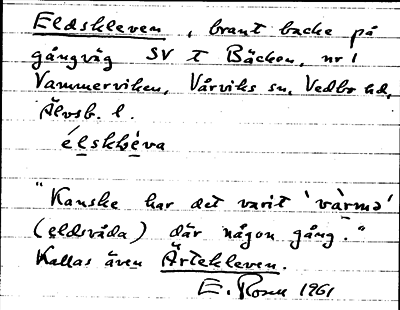 Eldskleven, brant backe på
gångväg SV t Bäcken, nr 1
Vammerviken, Vårviks sn, Vedbo hd,
Älvsb. l.
élskbléva
"Kanske har det varit 'värmə'
(eldsvåda) där någon gång."
Kallas även Ärtekleven.
E. Rosen 1961